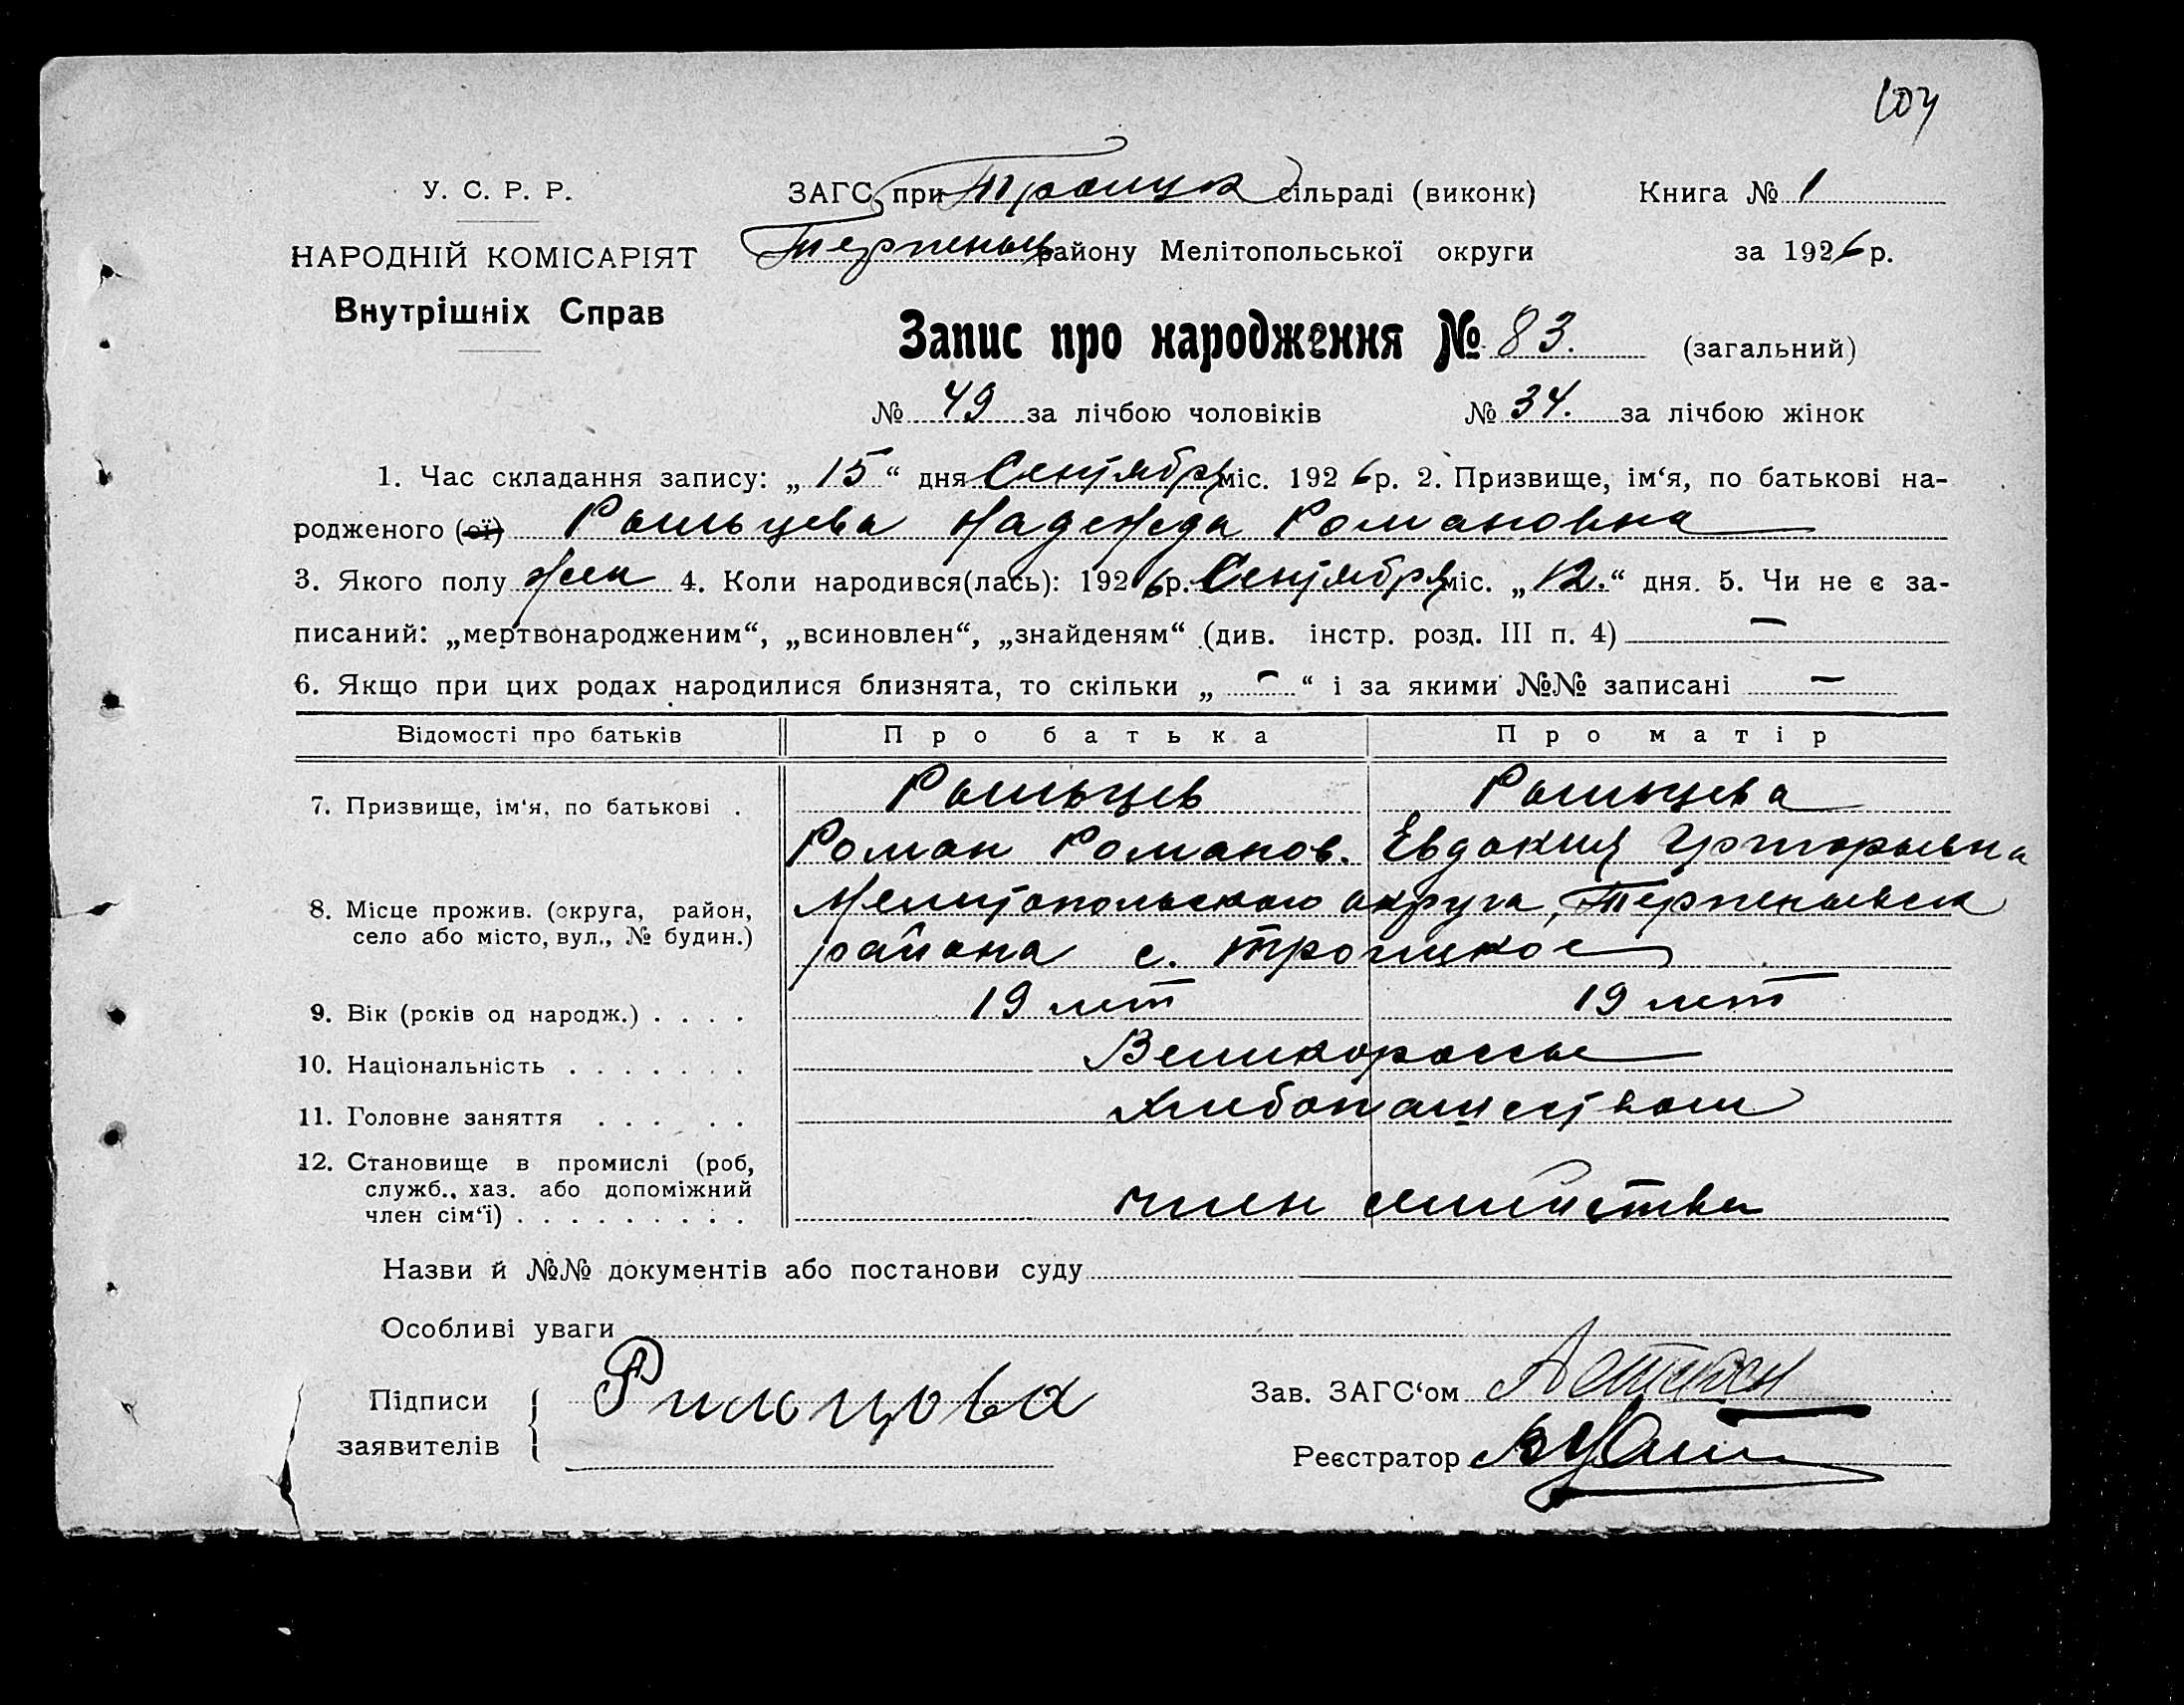 104
У. С. Р. Р.
ЗАГС при Троицк сільраді (виконк)
Книга № 1
НАРОДНІЙ КОМІСАРІЯТ
Терпеньев району Мелітопольської округи
за 1926 р.
Внутрішніх Справ
Запис про народження № 83. (загальний)
№ 49 за лічбою чоловіків № 34. за лічбою жінок
1. Час складання запису: „ 15 “ дня Сентября міс. 1926 р. 2. Призвище, ім‘я, по батькові на-
родженого (ої) Рыльцева Надежда Романовна
3. Якого полу жен 4. Коли народився(лась): 1926 р. Сентября міс. „ 12. “ дня. 5. Чи не є за-
писаний: „мертвонародженим“, „всиновлен“, „знайденям“ (див. інстр. розд. III п. 4) —
6. Якщо при цих родах народилися близнята, то скільки „ — “ і за якими №№ записані —
Відомості про батьків Про батька Про матір
7. Призвище, ім‘я, по батькові . Рыльцев Рыльцева
Роман Романов. Евдокия Григорьевна
8. Місце прожив. (округа, район, Мелитопольского округа, Терпеньевск
село або місто, вул., № будин.) района с. Троицкое
9. Вік (років од народж.) . . . . 19 лет 19 лет
10. Національність . . . . . . . Великороссы
11. Головне заняття . . . . . Хлебопашеством
12. Становище в промислі (роб,
служб., хаз. або допоміжний
член сім‘ї) . . . . . . . . . член семейства
Назви й №№ документів або постанови суду
Особливі уваги
Підписи Рильцова
Зав. ЗАГС‘ом
заявителів
Реєстратор